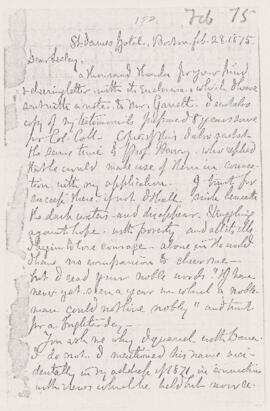 152
Feb 75
St. James Hotel, Boston Feb. 28. 1875.
Dear Seeley,
A thousand thanks for your kind
& cheering letter with its enclosure, which I have
sent with a note to Mr. Garrett. I sent also
copy of my testimonials prepared 8 years since
for Col. Coll. Copies of this I also sent at
the same time to Prof. Henry, who asked
that he could make use of them in connec-
tion with my application. I trust for
success there; if not I shall sink beneath
the dark waters and disappear. Struggling
against hope with poverty and all its ills
I begin to lose courage - alone in the world
I have no companion to cheer me -
but I read your noble words "If have
never yet seen a year in which a noble
man could not live nobly" and trust
for a brighter day.
You ask me why I quarrel with Dana
I do not. I mentioned his name inci-
dentally in my address of 1871, in connection
with views which he held but now de-